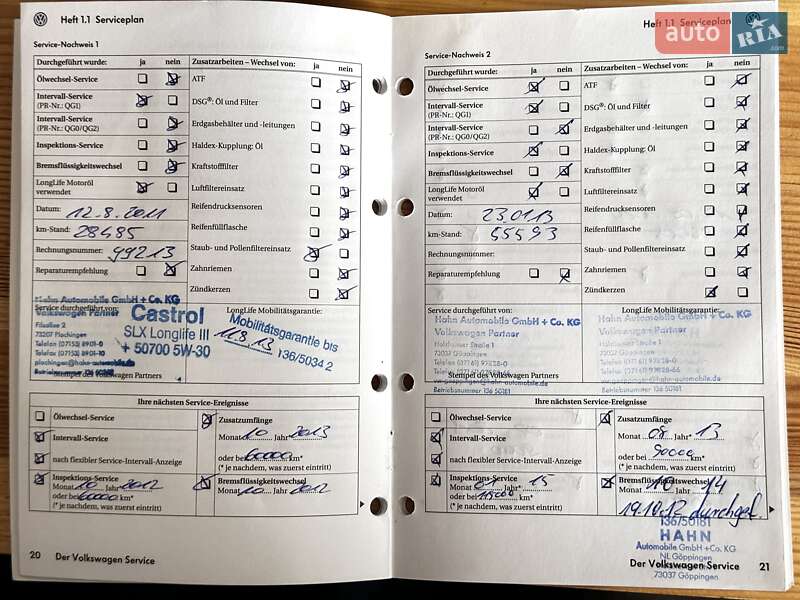 Heft 1.1 Serviceplan
Service-Nachweis 1
Durchgeführt wurde: ja nein
Zusatzarbeiten – Wechsel von: ja nein
Ölwechsel-Service
ATF
Intervall-Service
(PR-Nr.: QG1)
DSG®: Öl und Filter
Intervall-Service
(PR-Nr.: QG0/QG2)
Erdgasbehälter und -leitungen
Inspektions-Service
Haldex-Kupplung: Öl
Bremsflüssigkeitswechsel
Kraftstofffilter
LongLife Motoröl
verwendet
Luftfiltereinsatz
Datum: 12.8.2011
Reifendrucksensoren
km-Stand: 28485
Reifenfüllflasche
Rechnungsnummer: 99213
Staub- und Pollenfiltereinsatz
Reparaturempfehlung
Zahnriemen
Zündkerzen
Service durchgeführt von:
LongLife Mobilitätsgarantie:
Hahn Automobile GmbH + Co. KG
Volkswagen Partner
Filialloe 2
73207 Plochingen
Telefon (07153) 8901-0
Telefax (07153) 8901-10
plochingen@hahn-automobile.de
Castrol
SLX Longlife III
+ 50700 5W-30
Mobilitätsgarantie bis
11.8.13
136/5034 2
Stempel des Volkswagen Partners
Ihre nächsten Service-Ereignisse
Ölwechsel-Service
Zusatzumfänge
Monat 10 Jahr* 2013
Intervall-Service
oder bei 60000 km*
nach flexibler Service-Intervall-Anzeige
(* je nachdem, was zuerst eintritt)
Inspektions-Service
Monat 10 Jahr* 2012
oder bei 60000 km*
(* je nachdem, was zuerst eintritt)
Bremsflüssigkeitswechsel
Monat 10 Jahr 2012
20 Der Volkswagen Service
Heft 1.1 Serviceplan
auto RIA .com
Service-Nachweis 2
Durchgeführt wurde: ja nein
Zusatzarbeiten – Wechsel von: ja nein
Ölwechsel-Service
ATF
Intervall-Service
(PR-Nr.: QG1)
DSG®: Öl und Filter
Intervall-Service
(PR-Nr.: QG0/QG2)
Erdgasbehälter und -leitungen
Inspektions-Service
Haldex-Kupplung: Öl
Bremsflüssigkeitswechsel
Kraftstofffilter
LongLife Motoröl
verwendet
Luftfiltereinsatz
Datum: 23.01.13
Reifendrucksensoren
km-Stand: 55593
Reifenfüllflasche
Rechnungsnummer:
Staub- und Pollenfiltereinsatz
Reparaturempfehlung
Zahnriemen
Zündkerzen
Service durchgeführt von:
LongLife Mobilitätsgarantie:
Hahn Automobile GmbH + Co. KG
Volkswagen Partner
Holzhauser Straße 1
73032 Göppingen
Telefon (07161) 97828-0
Telefax (07161) 97828-66
vw-goeppingen@hahn-automobile.de
Betriebsnummer 136 50181
Hahn Automobile GmbH + Co. KG
Volkswagen Partner
Holzhauser Straße 1
73032 Göppingen
Telefon (07161) 97828-0
Telefax (07161) 97828-66
vw-goeppingen@hahn-automobile.de
Betriebsnummer 136 50181
Stempel des Volkswagen Partners
Ihre nächsten Service-Ereignisse
Ölwechsel-Service
Zusatzumfänge
Monat 08 Jahr* 13
Intervall-Service
oder bei 90000 km*
nach flexibler Service-Intervall-Anzeige
(* je nachdem, was zuerst eintritt)
Inspektions-Service
Monat 01 Jahr* 15
oder bei 115000 km*
(* je nachdem, was zuerst eintritt)
Bremsflüssigkeitswechsel
Monat 10 Jahr 14
19.10.12 durchgef.
136/50181
HAHN
Automobile GmbH +Co. KG
NL Göppingen
Der Volkswagen Service 21
73037 Göppingen